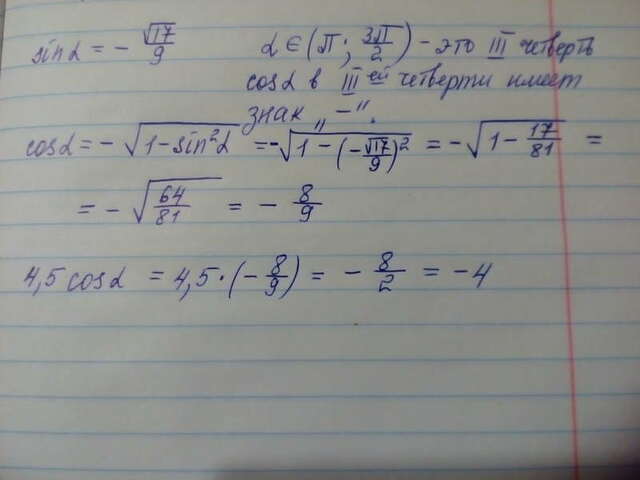 sinα = - √17/9 α ∈ (π; 3π/2) - это III четверть
cosα в III ей четверти имеет
знак „-".
cosα = - √(1-sin²α) = -√(1-(-√17/9)²) = -√(1-17/81) =
= - √(64/81) = - 8/9
4,5 cosα = 4,5·(-8/9) = - 8/2 = -4